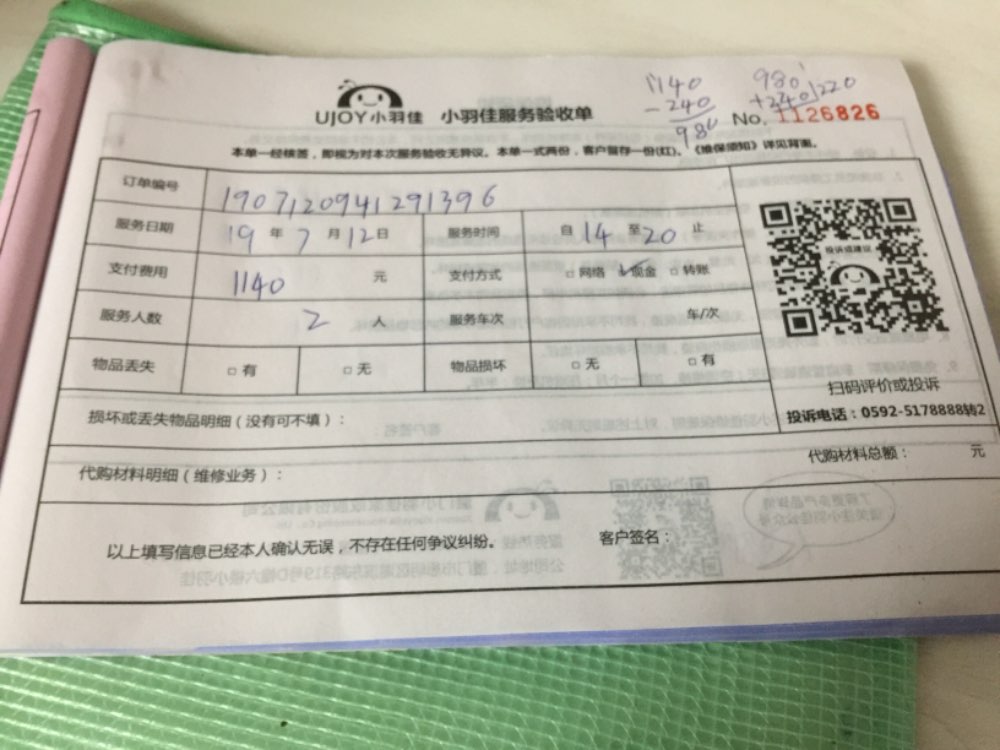 1140
- 240
980
980
+240 1220
UJOY小羽佳 小羽佳服务验收单 No. 1126826
本单一经核签，即视为对本次服务验收无异议。本单一式两份，客户留存一份(红)。《维保须知》详见背面。
订单编号 1907120941291396
服务日期 19 年 7 月 12 日 服务时间 自 14 至 20 止
支付费用 1140 元 支付方式 □ 网络 ✓现金 □ 转账
服务人数 2 人 服务车次 车/次
物品丢失 □ 有 □ 无 物品损坏 □ 无 □ 有
投诉或建议
扫码评价或投诉
投诉电话：0592-5178888转2
损坏或丢失物品明细（没有可不填）：
代购材料明细（维修业务）： 代购材料总额： 元
以上填写信息已经本人确认无误，不存在任何争议纠纷。 客户签名：